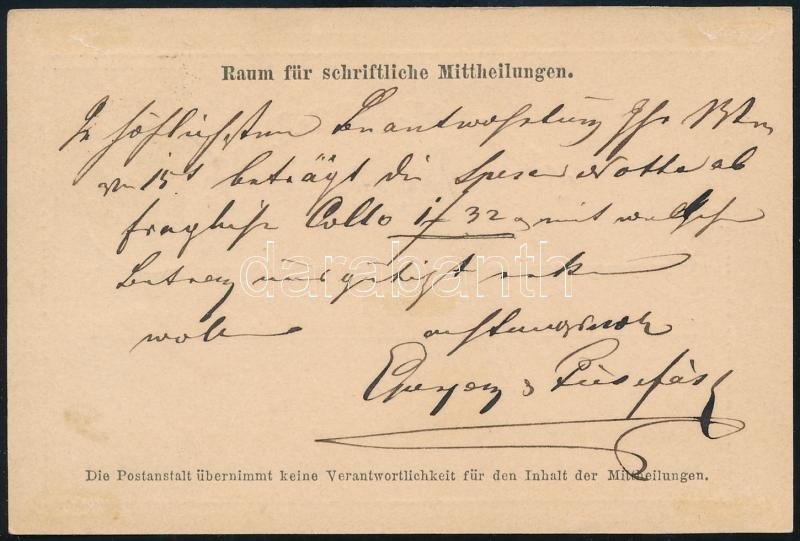 Raum für schriftliche Mittheilungen.
höflichsten Beantwortung Ihr
vom 15t beträgt die Spesen Notta ab
fragliche Collo 1 32 mit welchen
Betrag uns gütigst
wollen achtungsvoll
darabanth
Die Postanstalt übernimmt keine Verantwortlichkeit für den Inhalt der Mittheilungen.